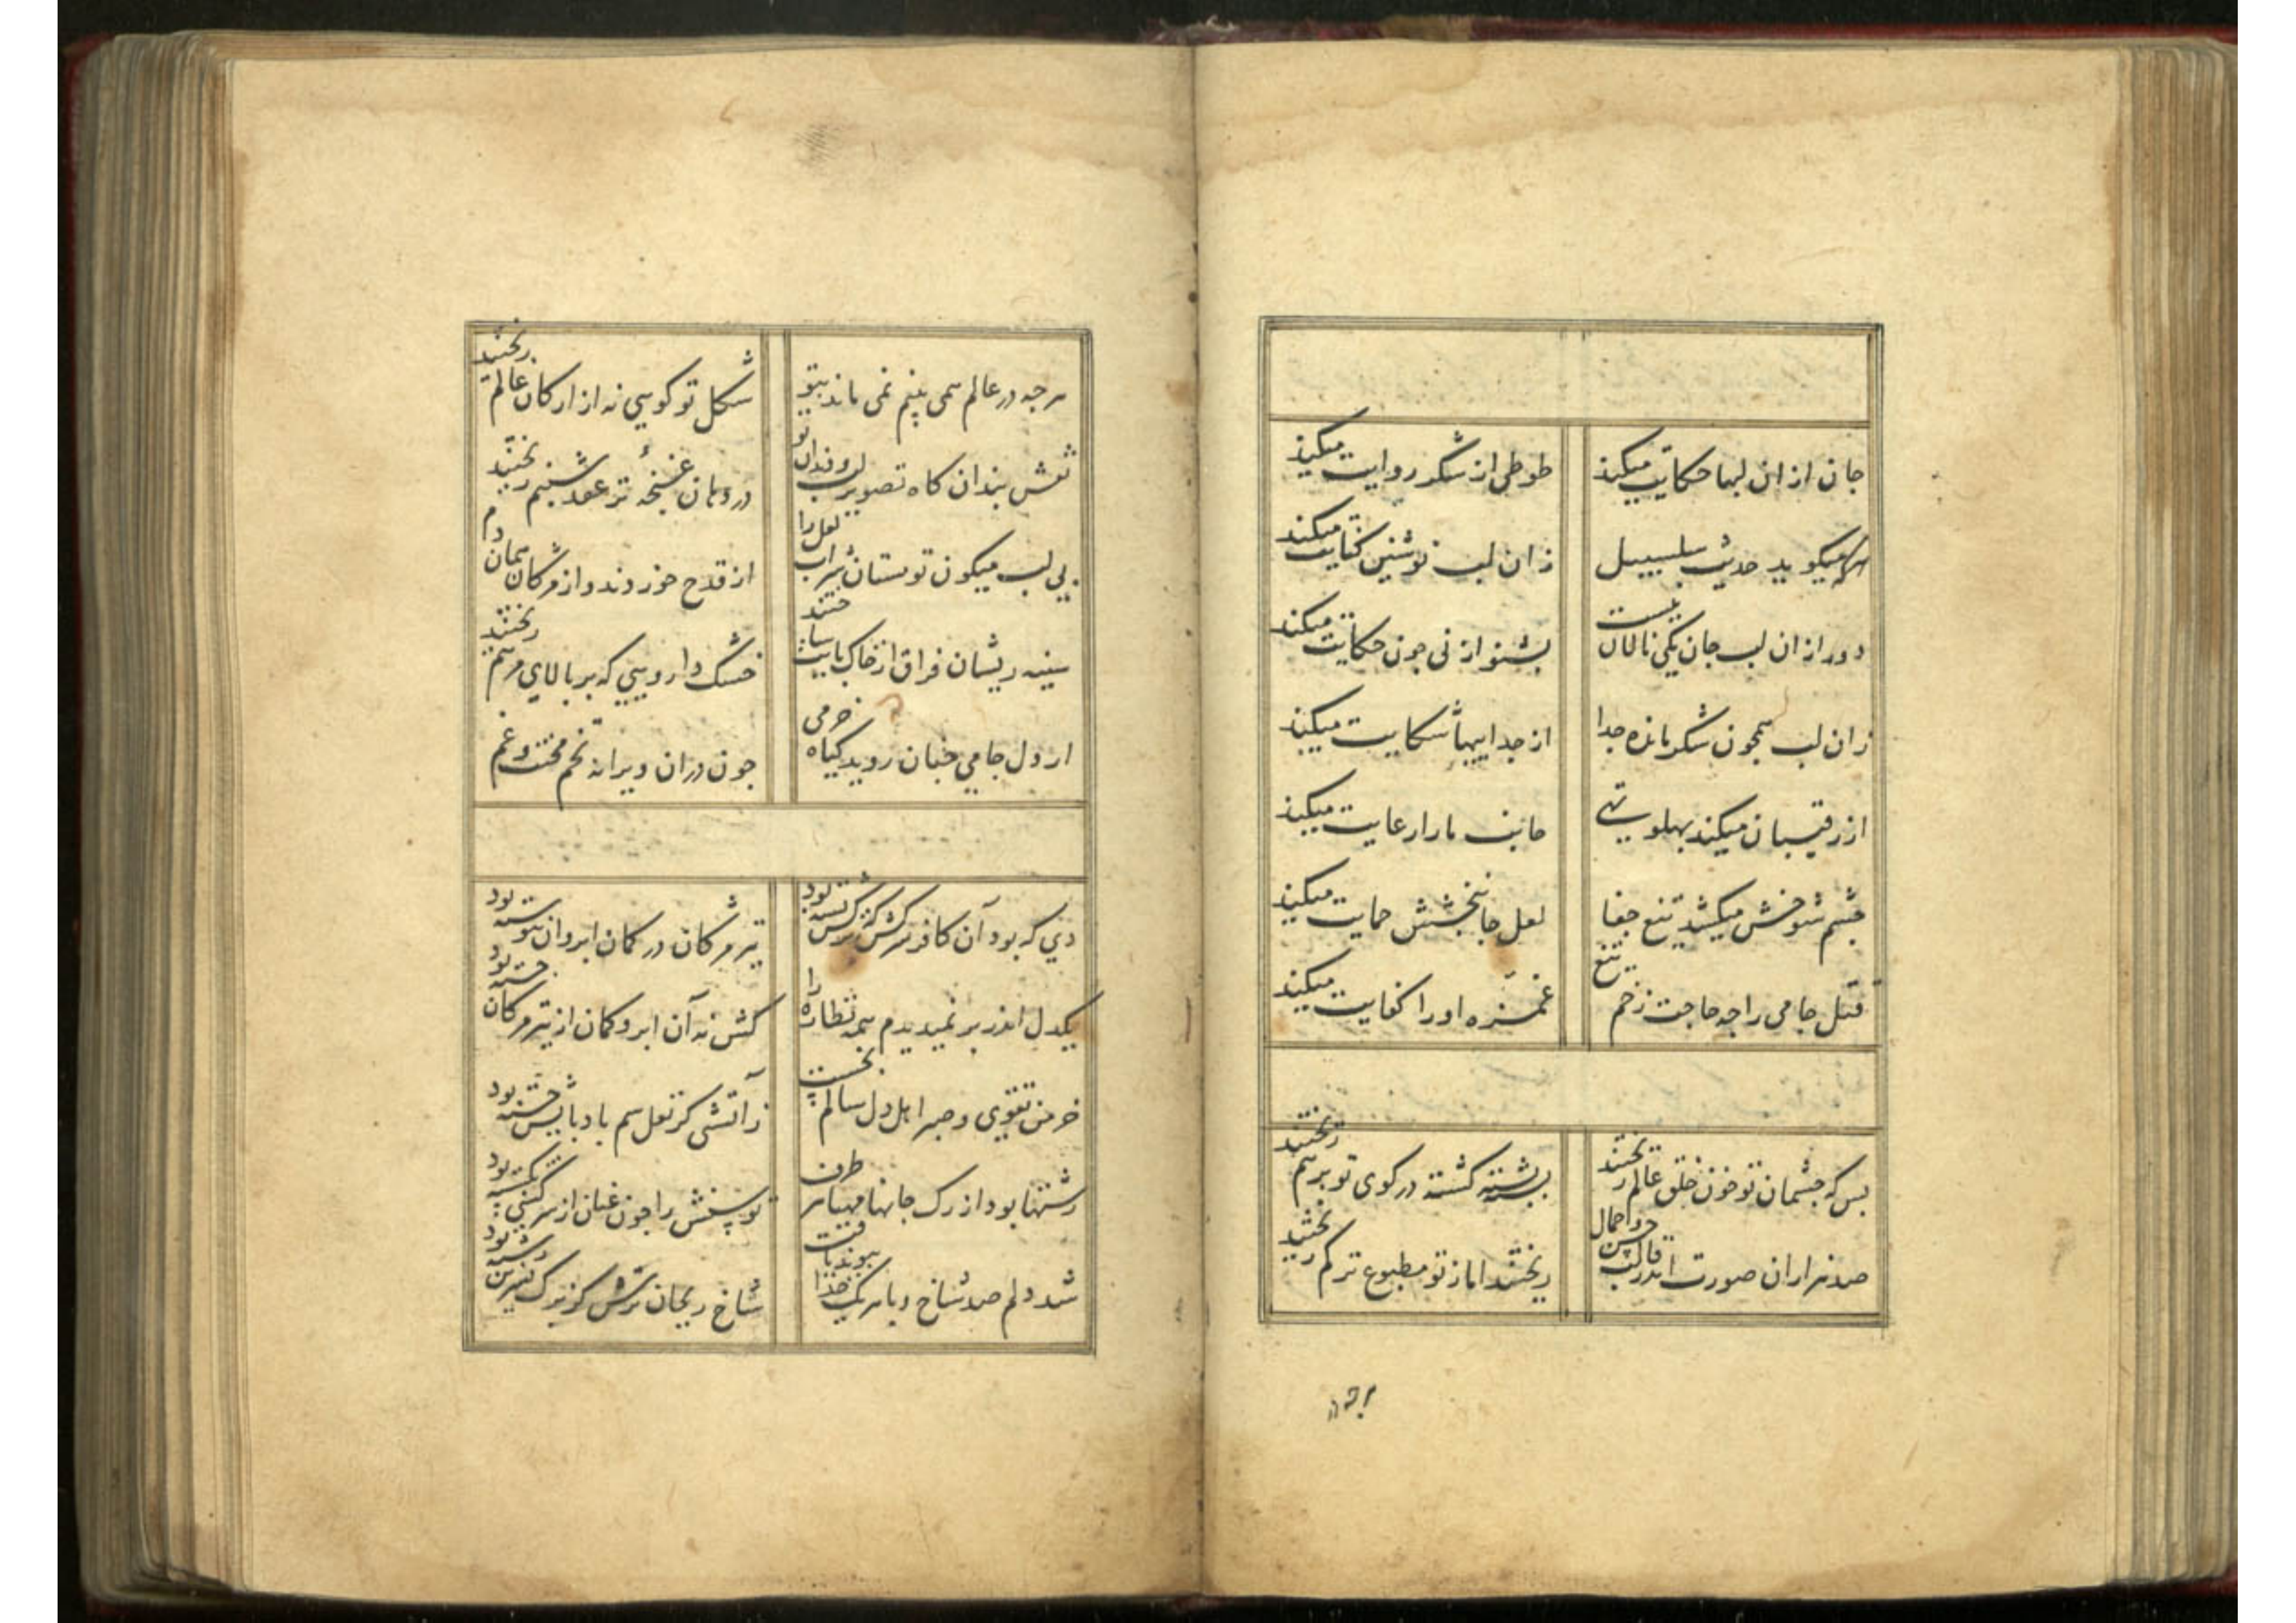 جان از ان لبها حکایت میکند
طوطی از شکر روایت میکند
هرکه میکوید حدیث سلسبیل
زان لب نوشین کنایت میکند
دور از ان لب جان یکی نالان نیست
بشنو از نی جون حکایت میکند
زان لب همجون شکر مانده جدا
از جداییها شکایت میکند
از رقیبان میکند بهلو تهی
جانب ما را رعایت میکند
جشم شوخش میکشد تیغ جفا
لعل جانبخشش حمایت میکند
قتل جامی را جه حاجت زخم تیغ
غمزه او را کفایت میکند
بس که جشمان تو خون خلق عالم ریختند
بشته بشته کشته در کوی تو بر هم ریختند
صد هزاران صورت اندر قالب حسن و جمال
ریختند اما ز تو مطبوع تر کم ریختند
هر جه در عالم همی بینم نمی ماند بتو
شکل تو کویی نه از ارکان عالم ریختند
نقش بندان کاه تصویر لب و دندان تو
در دهان غنچه تر عقد شبنم ریختند
بی لب میکون تو مستان شراب لعل را
از قدح خوردند و از مژکان همان دم ریختند
سینه ریشان فراق از خاک بایت ساختند
خشک دارویی که بر بالای مرهم
از دل جامی جنان روید کیاه خرمی
جون دران ویرانه تخم محنت و غم
دی که بود آن کافر سرکش که ترکش بسته بود
تیر مژکان در کمان ابروان بیوسته بود
یکدل اندر بر نمیدیدم همه نظاره را
کش نه آن ابرو کمان از تیر مژکان خسته بود
خرمن تقوی و صبر اهل دل سالم نجست
زآتشی کز نعل سم بادبایش جسته بود
رشتها بود از رک جانها مهیا هر طرف
توسنش را جون عنان از سرکشی بکسته بود
شد دلم صد شاخ و با هر یک جدا بیوند یافت
شاخ ریحان ترش کز برک نسرین رسته بود